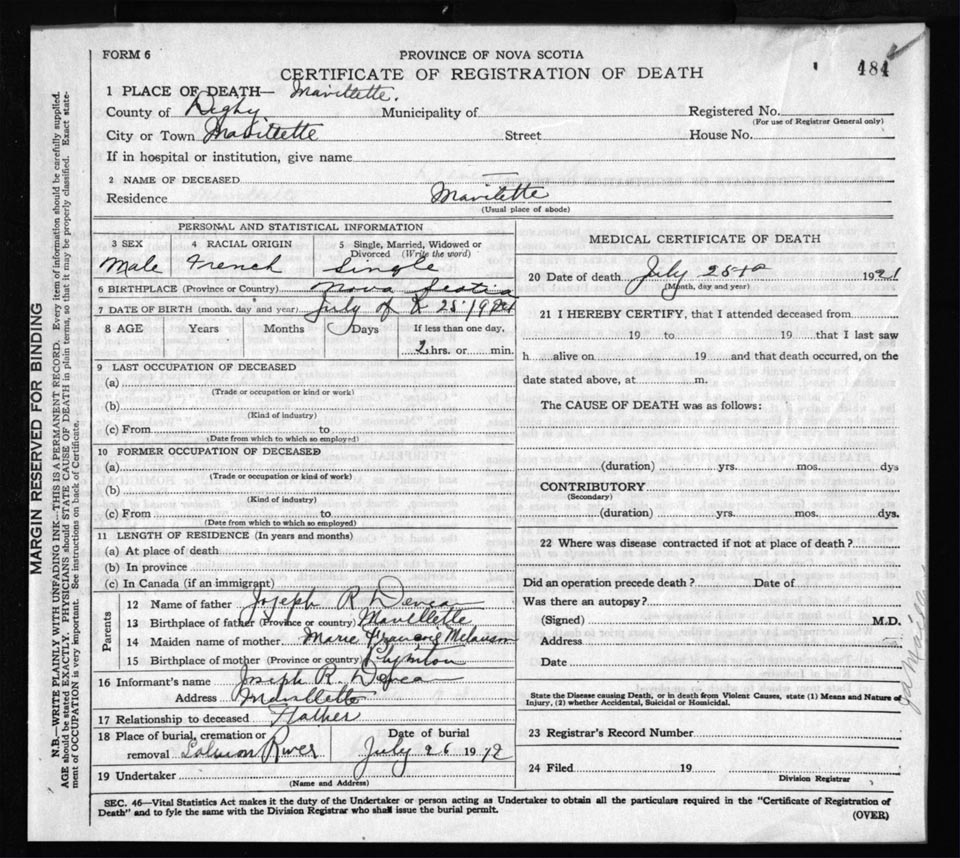 FORM 6
PROVINCE OF NOVA SCOTIA
CERTIFICATE OF REGISTRATION OF DEATH
484
1 PLACE OF DEATH— Mavillette.
County of Digby Municipality of Registered No.
(For use of Registrar General only)
City or Town Mavillette Street House No.
If in hospital or institution, give name
2 NAME OF DECEASED
Residence Mavilette
(Usual place of abode)
PERSONAL AND STATISTICAL INFORMATION
3 SEX 4 RACIAL ORIGIN 5 Single, Married, Widowed or Divorced (Write the word)
Male French Single
6 BIRTHPLACE (Province or Country) Nova Scotia
7 DATE OF BIRTH (month, day and year) July 25
8 AGE Years Months Days If less than one day,
2 hrs. or min.
9 LAST OCCUPATION OF DECEASED
(a)
(Trade or occupation or kind or work)
(b)
(Kind of industry)
(c) From to
(Date from which to which so employed)
10 FORMER OCCUPATION OF DECEASED
(a)
(Trade or occupation or kind of work)
(b)
(Kind of industry)
(c) From to
(Date from which to which so employed)
11 LENGTH OF RESIDENCE (In years and months)
(a) At place of death
(b) In province
(c) In Canada (if an immigrant)
Parents
12 Name of father Joseph R Deveau
13 Birthplace of father (Province or country) Mavillette
14 Maiden name of mother Marie Melanson
15 Birthplace of mother (Province or country)
16 Informant's name Joseph R. Deveau
Address Mavillette
17 Relationship to deceased Father
18 Place of burial, cremation or Date of burial
removal Salmon River July 26 19
19 Undertaker
(Name and Address)
MEDICAL CERTIFICATE OF DEATH
20 Date of death July 25th 192
(Month, day and year)
21 I HEREBY CERTIFY, that I attended deceased from
19 to 19 that I last saw
h alive on 19 and that death occurred, on the
date stated above, at m.
The CAUSE OF DEATH was as follows:
(duration) yrs. mos. dys
CONTRIBUTORY
(Secondary)
(duration) yrs. mos. dys.
22 Where was disease contracted if not at place of death?
Did an operation precede death? Date of
Was there an autopsy?
(Signed) M.D.
Address
Date
State the Disease causing Death, or in death from Violent Causes, state (1) Means and Nature of
Injury, (2) whether Accidental, Suicidal or Homicidal.
23 Registrar's Record Number
24 Filed 19
Division Registrar
SEC. 46—Vital Statistics Act makes it the duty of the Undertaker or person acting as Undertaker to obtain all the particulars required in the "Certificate of Registration of
Death" and to fyle the same with the Division Registrar who shall issue the burial permit.
(OVER)
MARGIN RESERVED FOR BINDING
N.B.—WRITE PLAINLY WITH UNFADING INK—THIS IS A PERMANENT RECORD. Every item of information should be carefully supplied.
AGE should be stated EXACTLY. PHYSICIANS should STATE CAUSE OF DEATH in plain terms, so that it may be properly classified. Exact state-
ment of OCCUPATION is very important. See instructions on back of Certificate.